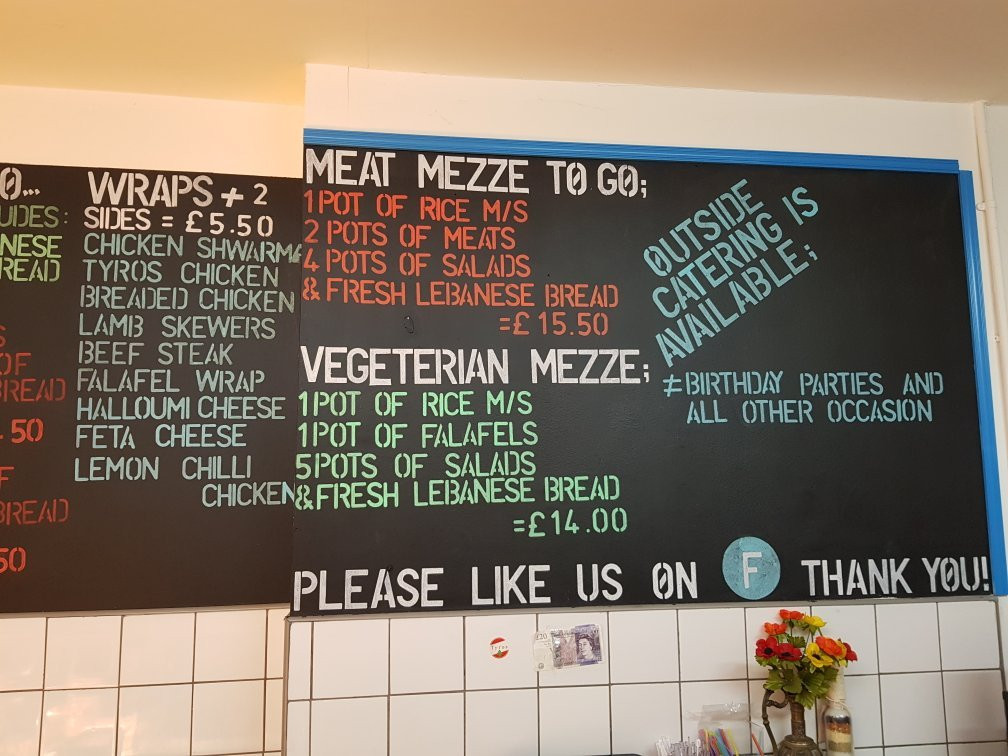 O...
UDES:
NESE
READ
S
OF
BREAD
.50
F
BREAD
50
WRAPS + 2
SIDES = £5.50
CHICKEN SHWARMA
TYROS CHICKEN
BREADED CHICKEN
LAMB SKEWERS
BEEF STEAK
FALAFEL WRAP
HALLOUMI CHEESE
FETA CHEESE
LEMON CHILLI
CHICKEN
MEAT MEZZE TO GO;
1 POT OF RICE M/S
2 POTS OF MEATS
4 POTS OF SALADS
& FRESH LEBANESE BREAD
=£ 15.50
VEGETERIAN MEZZE;
1 POT OF RICE M/S
1 POT OF FALAFELS
5 POTS OF SALADS
& FRESH LEBANESE BREAD
=£14.00
OUTSIDE
CATERING IS
AVAILABLE;
≠ BIRTHDAY PARTIES AND
ALL OTHER OCCASION
PLEASE LIKE US ON F THANK YOU!
Tyros
£20